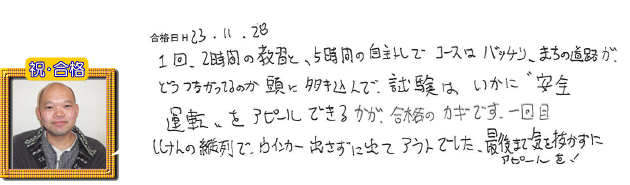 祝・合格
合格日 H 23.11.28
1回、2時間の教習と、5時間の自主トレで コースは バッチリ、まちの道路が、
どうつながってるのか 頭に タタき込んで、試験は いかに"安全
運転"を アピール できる かが、合格の カギです。一回目
しけんの 縦列で、ウインカー 出さずに出て アウトでした、最後まで気を抜かずに
アピールを!